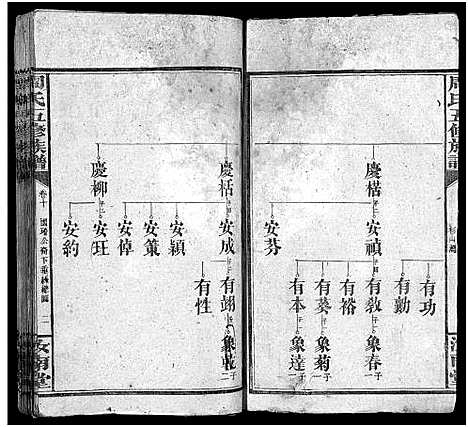 周氏五修族譜
有功
有勳
慶楷
安禎
有敎
象春
子一
有裕
有葵
象菊
子一
有本
象達
子一
安芬
慶栝
安成
有翊
象乾
子二
有性
安穎
安策
安倬
慶柳
安玨
安約
周氏五修族譜
卷十
二
汝南堂